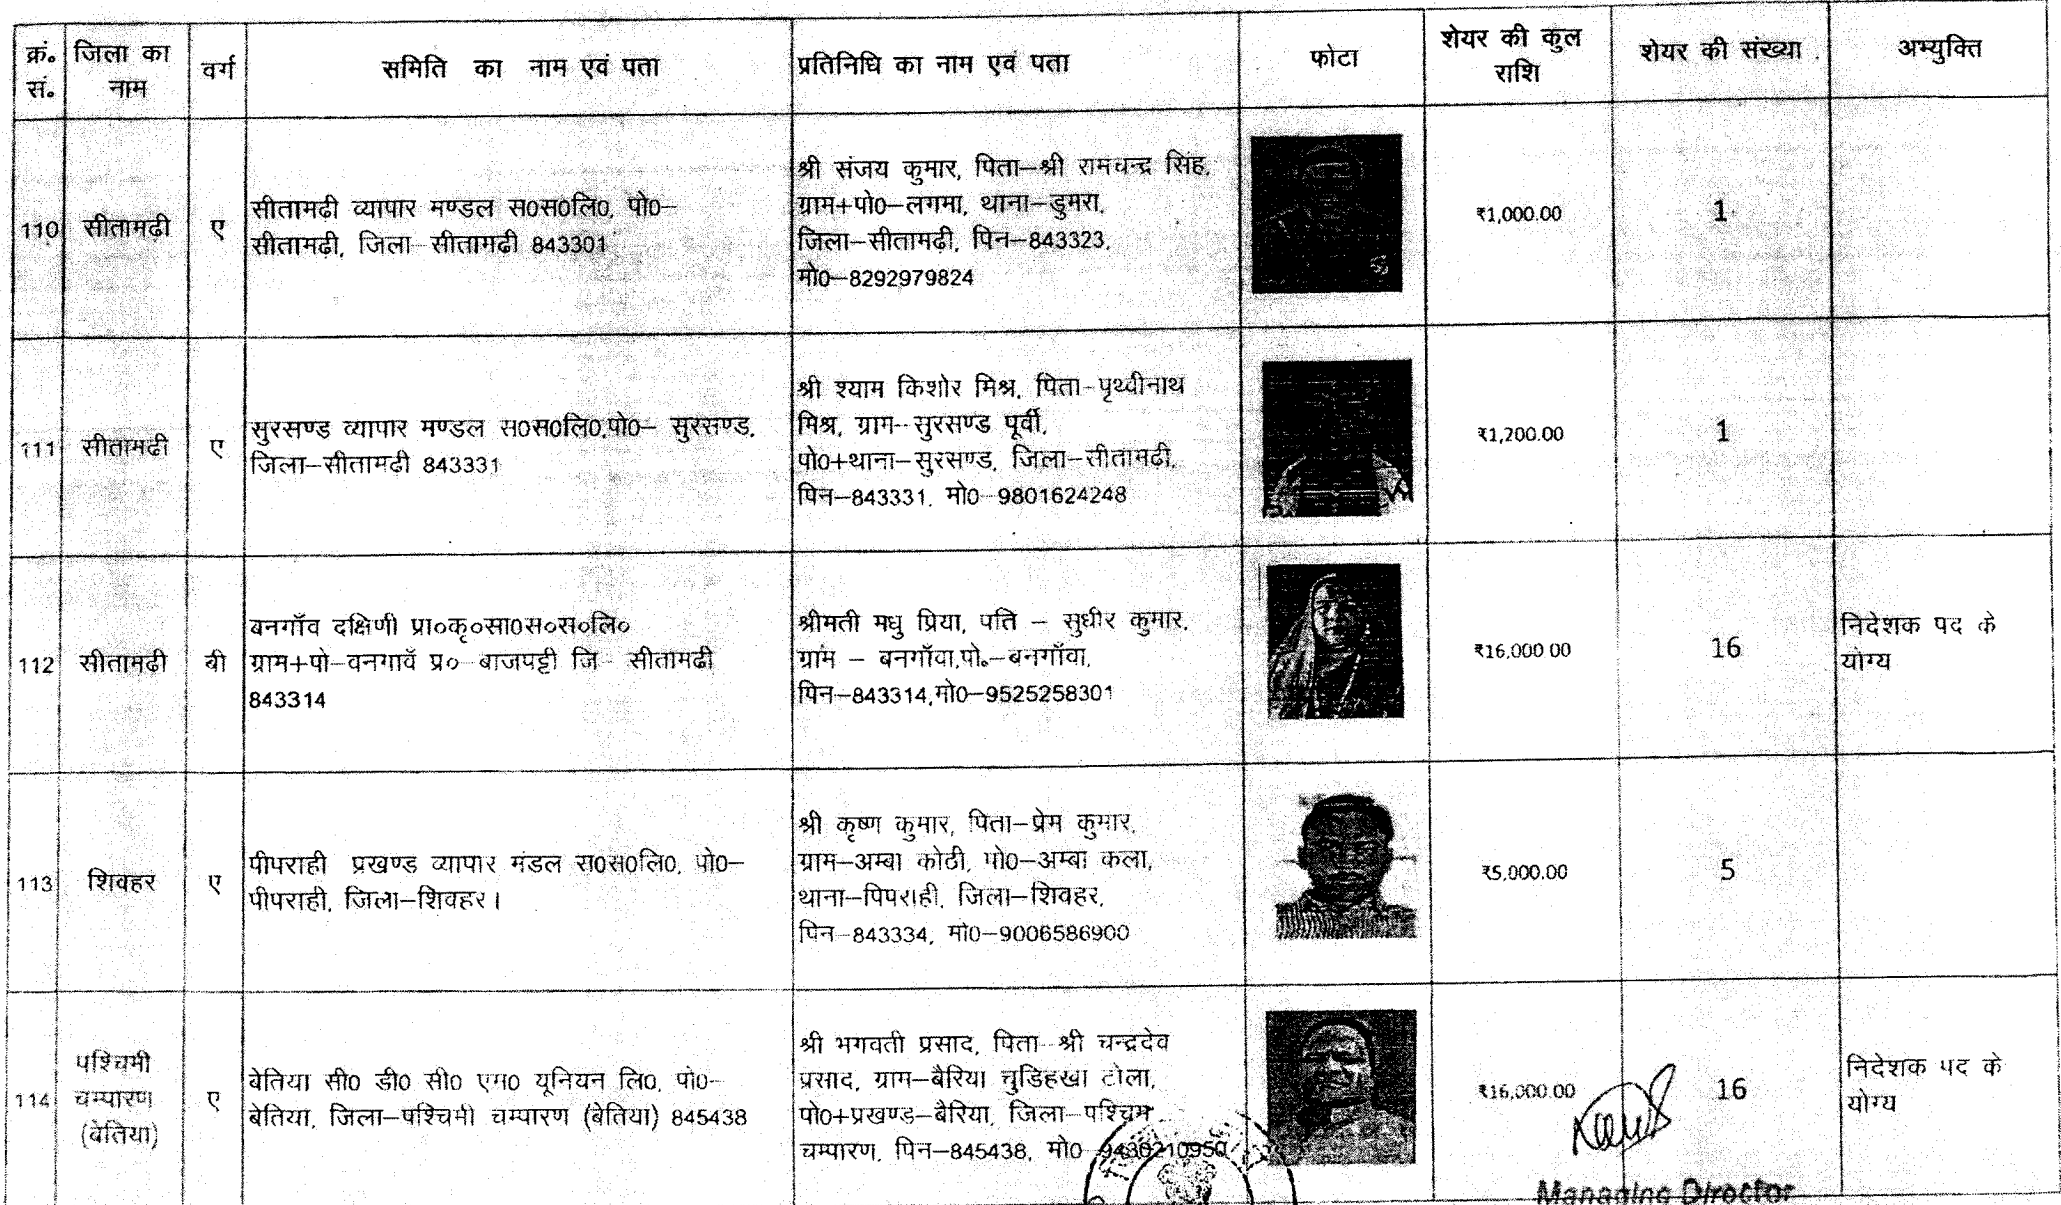 क्रं. सं.
जिला का नाम
वर्ग
समिति का नाम एवं पता
प्रतिनिधि का नाम एवं पता
फोटा
शेयर की कुल राशि
शेयर की संख्या
अभ्युक्ति
110
सीतामढ़ी
ए
सीतामढी व्यापार मण्डल स0स0लि0, पो0–
सीतामढ़ी, जिला– सीतामढी 843301
श्री संजय कुमार, पिता–श्री रामचन्द्र सिंह,
ग्राम+पो0–लगमा, थाना–डुमरा,
जिला–सीतामढ़ी, पिन–843323,
मो0–8292979824
₹1,000.00
1
111
सीतामढी
ए
सुरसण्ड व्यापार मण्डल स0स0लि0,पो0– सुरसण्ड,
जिला–सीतामढी 843331
श्री श्याम किशोर मिश्र, पिता–पृथ्वीनाथ
मिश्र, ग्राम–सुरसण्ड पूर्वी,
पो0+थाना–सुरसण्ड, जिला–सीतामढ़ी,
पिन–843331, मो0–9801624248
₹1,200.00
1
112
सीतामढी
बी
बनगाँव दक्षिणी प्रा०कृ०सा0स०स०लि०
ग्राम+पो–वनगावॅ प्र० बाजपट्टी जि– सीतामढी
843314
श्रीमती मधु प्रिया, पति – सुधीर कुमार,
ग्राम – बनगाँवा,पो.–बनगाँवा,
पिन–843314,मो0–9525258301
₹16,000.00
16
निदेशक पद के
योग्य
113
शिवहर
ए
पीपराही प्रखण्ड व्यापार मंडल स0स0लि0, पो0–
पीपराही, जिला–शिवहर।
श्री कृष्ण कुमार, पिता–प्रेम कुमार,
ग्राम–अम्बा कोठी, पो0–अम्बा कला,
थाना–पिपराही, जिला–शिवहर,
पिन–843334, मो0–9006586900
₹5,000.00
5
114
पश्चिमी
चम्पारण
(बेतिया)
ए
बेतिया सी0 डी0 सी0 एम0 यूनियन लि0, पो0–
बेतिया, जिला–पश्चिमी चम्पारण (बेतिया) 845438
श्री भगवती प्रसाद, पिता–श्री चन्द्रदेव
प्रसाद, ग्राम–बैरिया चुडिहरवा टोला,
पो0+प्रखण्ड–बैरिया, जिला–पश्चिम
चम्पारण, पिन–845438, मो0–9430210950
₹16,000.00
16
निदेशक पद के
योग्य
Managing Director